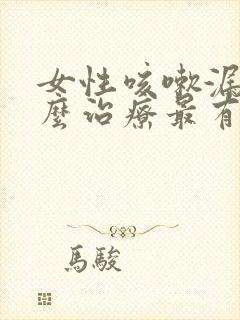 女性咳嗽漏
麼治療最有
馬駿